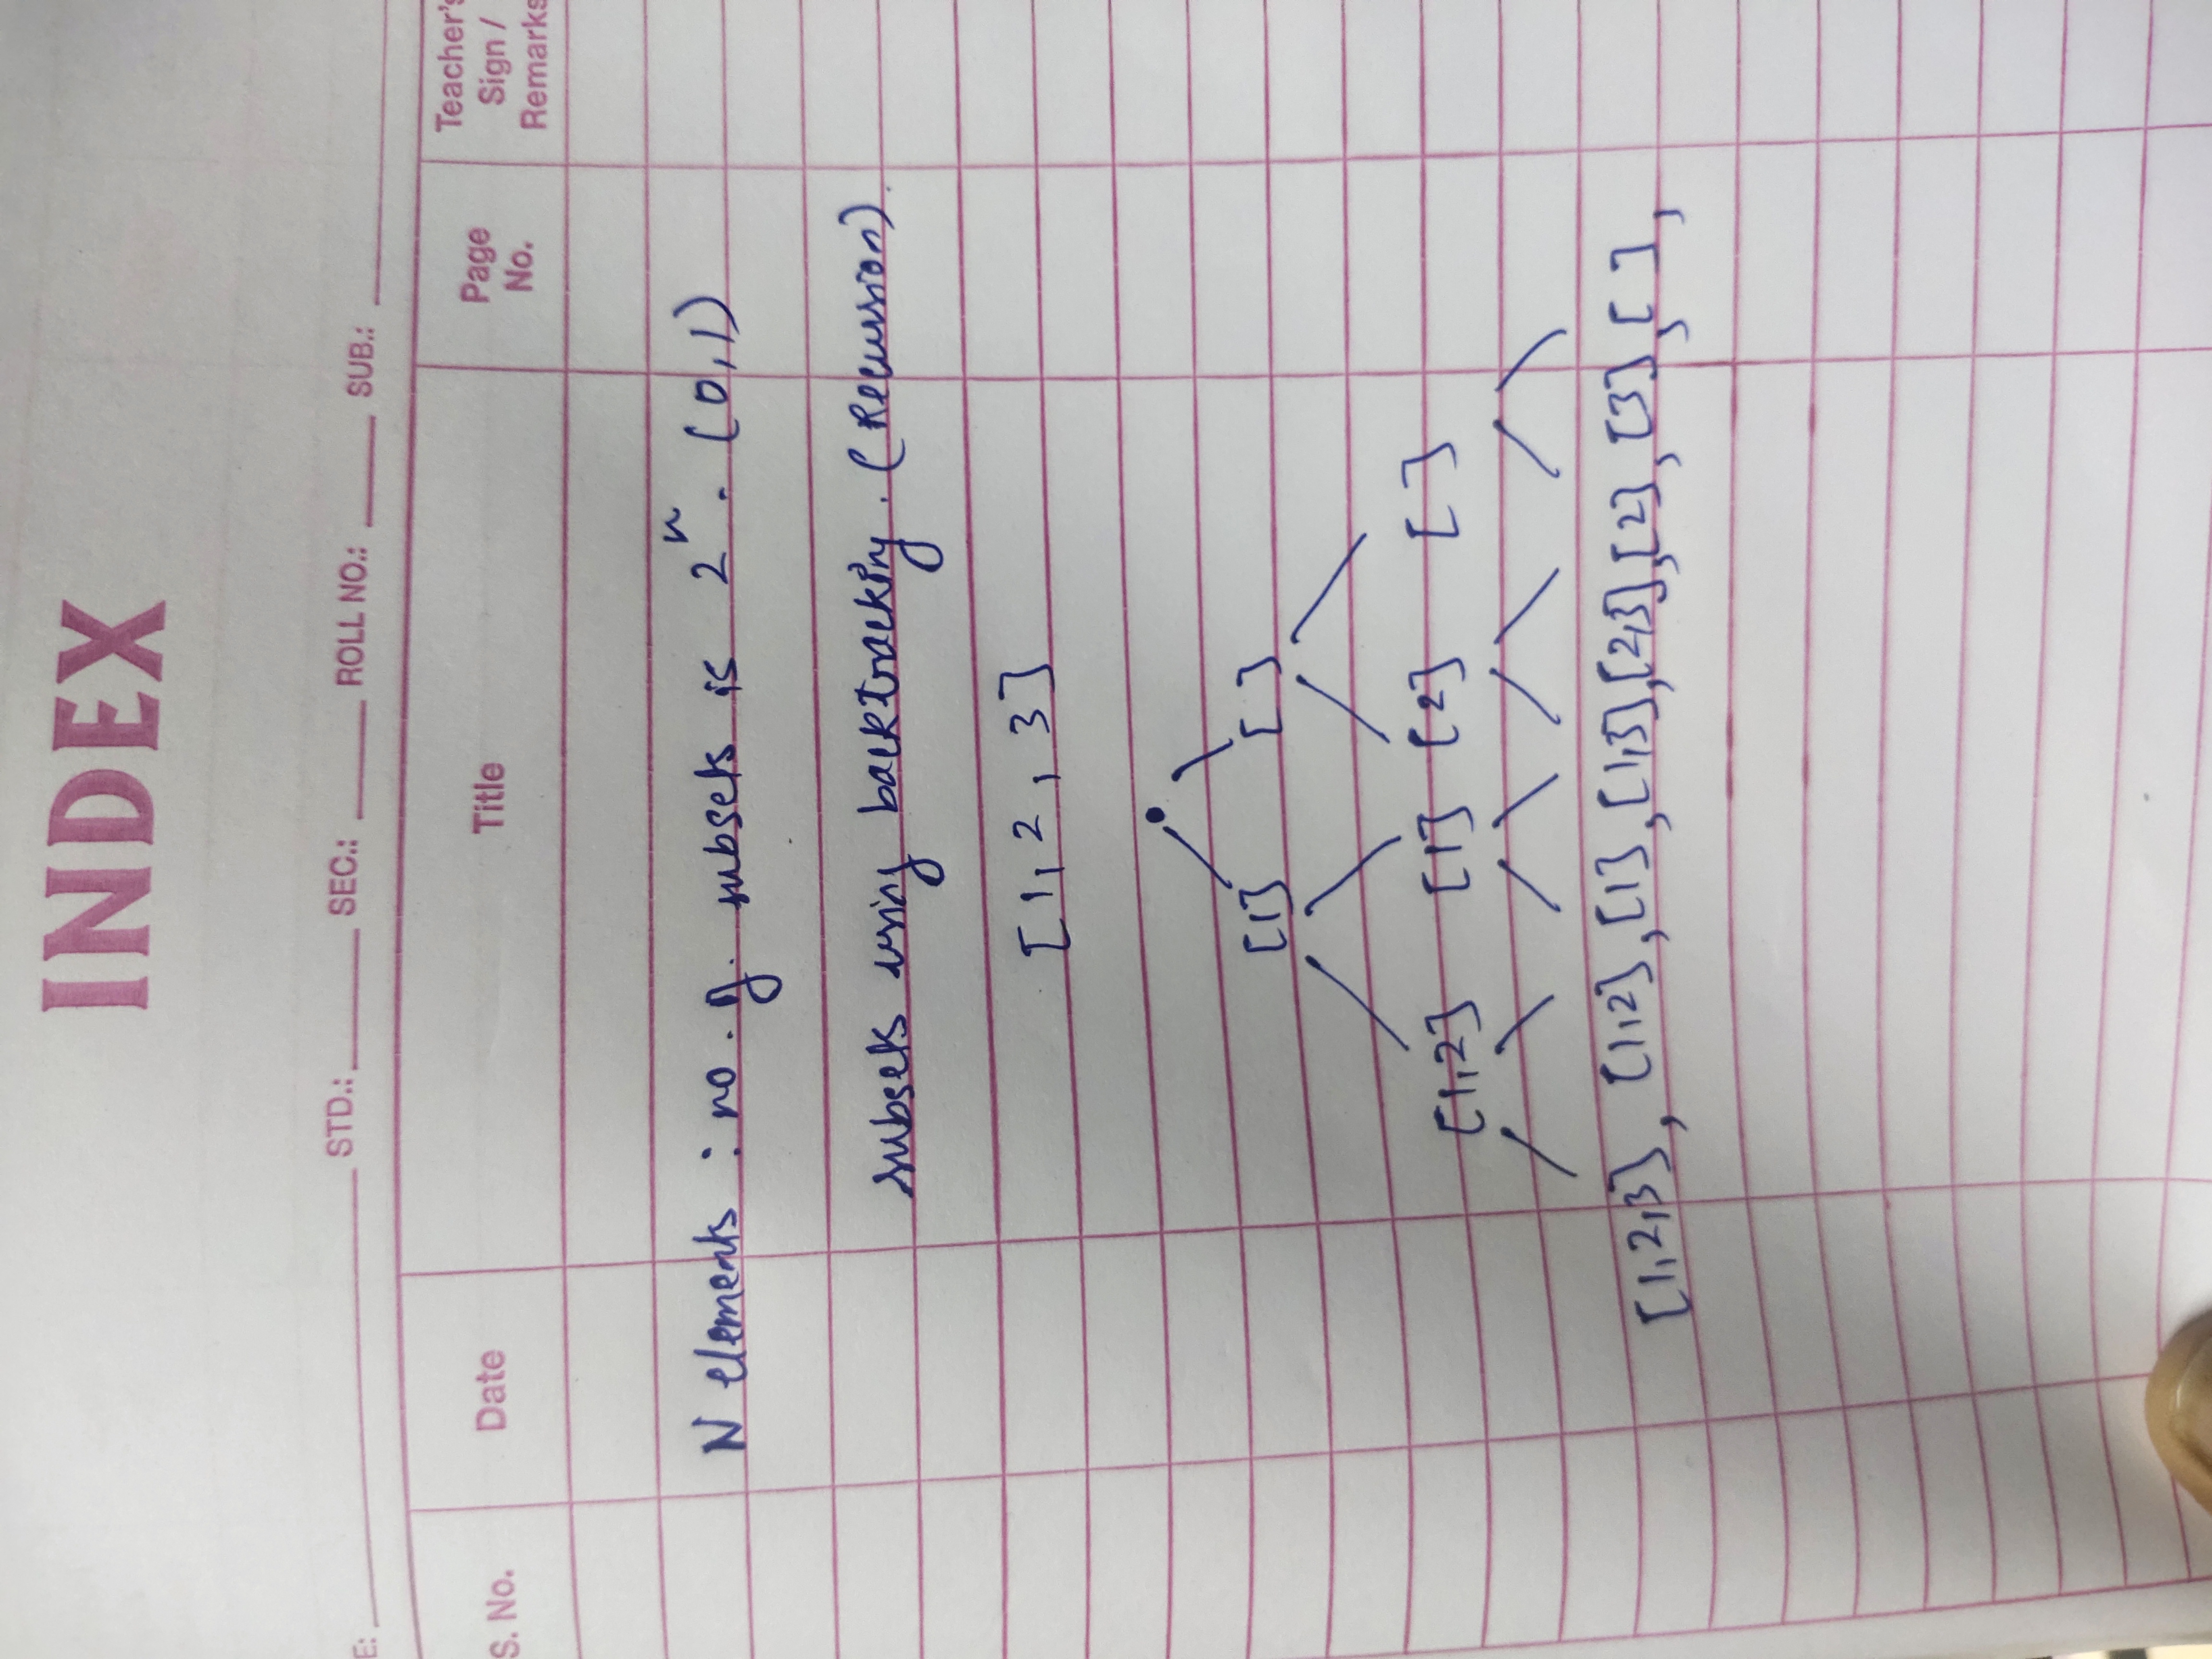 INDEX
E: STD.: SEC.: ROLL NO.: SUB.:
S. No. Date Title Page No. Teacher's Sign / Remarks
N elements : no. of. subsets is 2^n. (0,1)
subsets using backtracking. (Recursion).
[1, 2, 3]
[1] [ ]
[1,2] [1] [2] [ ]
[1,2,3], [1,2], [1], [1,3], [2,3], [2], [3], [ ],